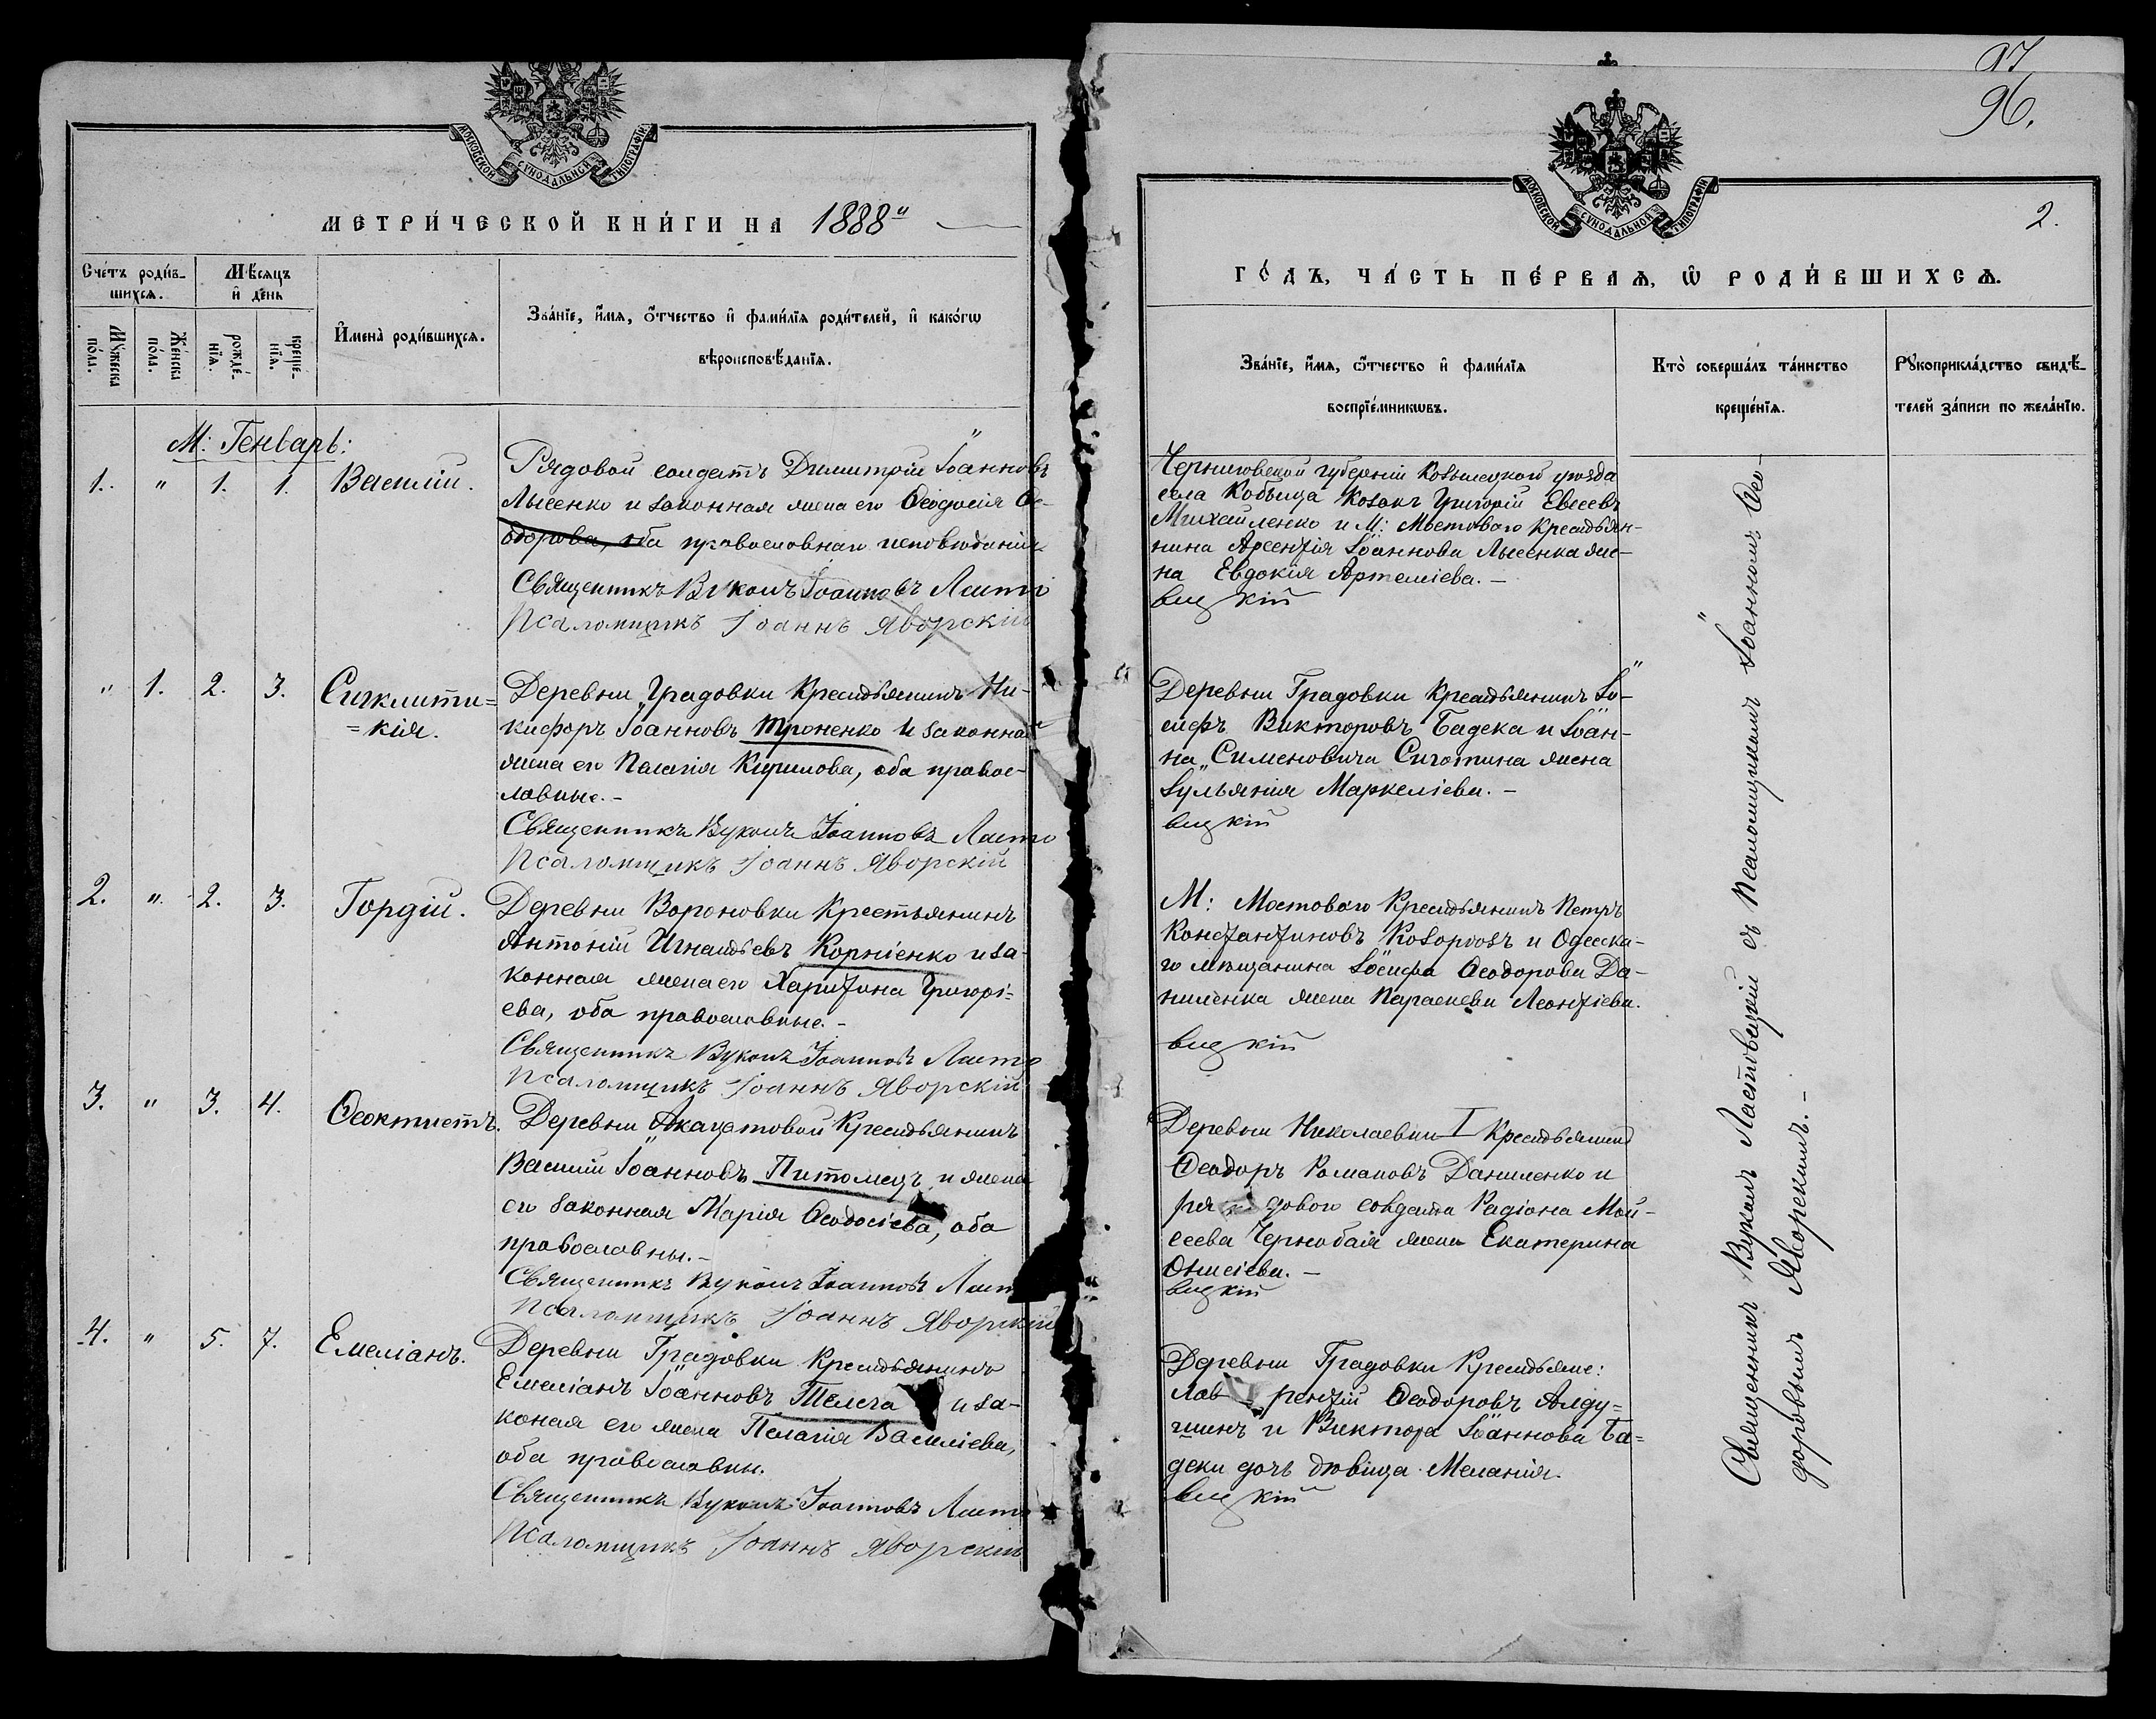 МОСКОВСКОЙ СѴНОДАЛЬНОЙ ТИПОГРАФІИ
МЕТРИ́ЧЕСКОЙ КНИ́ГИ НА 1888й
Сче́тъ роди́в-
шихсѧ.
Мѣ́сѧцъ
и҆ де́нь
Мꙋ́жеска
по́ла.
Же́нска
по́ла.
рожде́-
нїѧ.
креще́-
нїѧ.
И҆мена̀ роди́вшихсѧ.
Зва́нїе, и҆́мѧ, ѻ҆́тчество и҆ фами́лїѧ роди́телей, и҆ како́гѡ
вѣроисповѣ́данїѧ.
М: Генварь:
1. " 1. 1. Василій.
Рядовой солдатъ Димитрій Іоанновъ
Лысенко и законная жена его Ѳеодосія Ѳе-
одорова, оба православнаго исповѣданія
Священникъ Вуколъ Іоанновъ Ласто
Псаломщикъ Іоаннъ Яворскій
" 1. 2. 3. Сигклити=
=кія.
Деревни Градовки Крестьянинъ Ни-
кифоръ Іоанновъ Троненко и законная
жена его Пелагія Кирилова, оба правос-
лавные.-
Священникъ Вуколъ Іоанновъ Ласто
Псаломщикъ Іоаннъ Яворскій
2. " 2. 3. Гордій.
Деревни Вороновки Крестьянинъ
Антоній Игнатьевъ Корніенко и за-
конная жена его Харитина Григорі=
ева, оба православные.-
Священникъ Вуколъ Іоанновъ Ласто
Псаломщикъ Іоаннъ Яворскій
3. " 3. 4. Ѳеоктистъ.
Деревни Акацатовой Крестьянинъ
Василій Іоанновъ Питомецъ и жена
его законная Марія Ѳеодосіева, оба
православны.-
Священникъ Вуколъ Іоанновъ Ласт
Псаломщикъ Іоаннъ Яворскій
4. " 5. 7. Емеліанъ.
Деревни Градовки Крестьянинъ
Емеліанъ Іоанновъ Телега и за-
коная его жена Пелагія Василіева,
оба православны.
Священникъ Вуколъ Іоанновъ Ласто
Псаломщикъ Іоаннъ Яворскій
97
96.
МОСКОВСКОЙ СѴНОДАЛЬНОЙ ТИПОГРАФІИ
2.
ГО́ДЪ, ЧА́СТЬ ПЕ́РВАѦ, Ѡ҆ РОДИ́ВШИХСѦ.
Зва́нїе, и҆́мѧ, ѻ҆́тчество и҆ фами́лїѧ
воспрїе́мникѡвъ.
Кто̀ соверша́лъ та́инство
креще́нїѧ.
Рꙋкоприкла́дство свидѣ́-
телей за́писи по жела́нїю.
Черниговской губерніи Козелецкого уѣзда
села Кобыща Козакъ Григорій Евсеевъ
Михайленко и М: Мостового Крестьян-
нина Арсентія Іоаннова Лысенка же-
на Евдокія Артеміева.-
вицкій
Деревни Градовки Крестьянинъ Іо-
сифъ Викторовъ Бадека и Іоан-
на Сименовича Сиротина жена
Іульянія Маркеліева.-
вицкій
М: Мостового Крестьянинъ Петръ
Константиновъ Козорѣзъ и Одесска-
го мѣщанина Іосифа Ѳеодорова Да-
ниленка жена Параскева Леонтіева.
вицкій
Деревни Николаевки I Крестьянинъ
Ѳеодоръ Романовъ Даниленко и
рядового солдата Радіона Мой-
сеева Чернобая жена Екатерина
Онисіева.-
вицкій
Деревни Градовки Крестьяне:
Лаврентій Ѳеодоровъ Алду=
шинъ и Виктора Іоаннова Ба=
деки дочь дѣвица Меланія.
вицкій
Священникъ Вуколъ Ластовецкій съ Псаломщикомъ Іоанномъ Ѳео-
доровымъ Яворскимъ.-